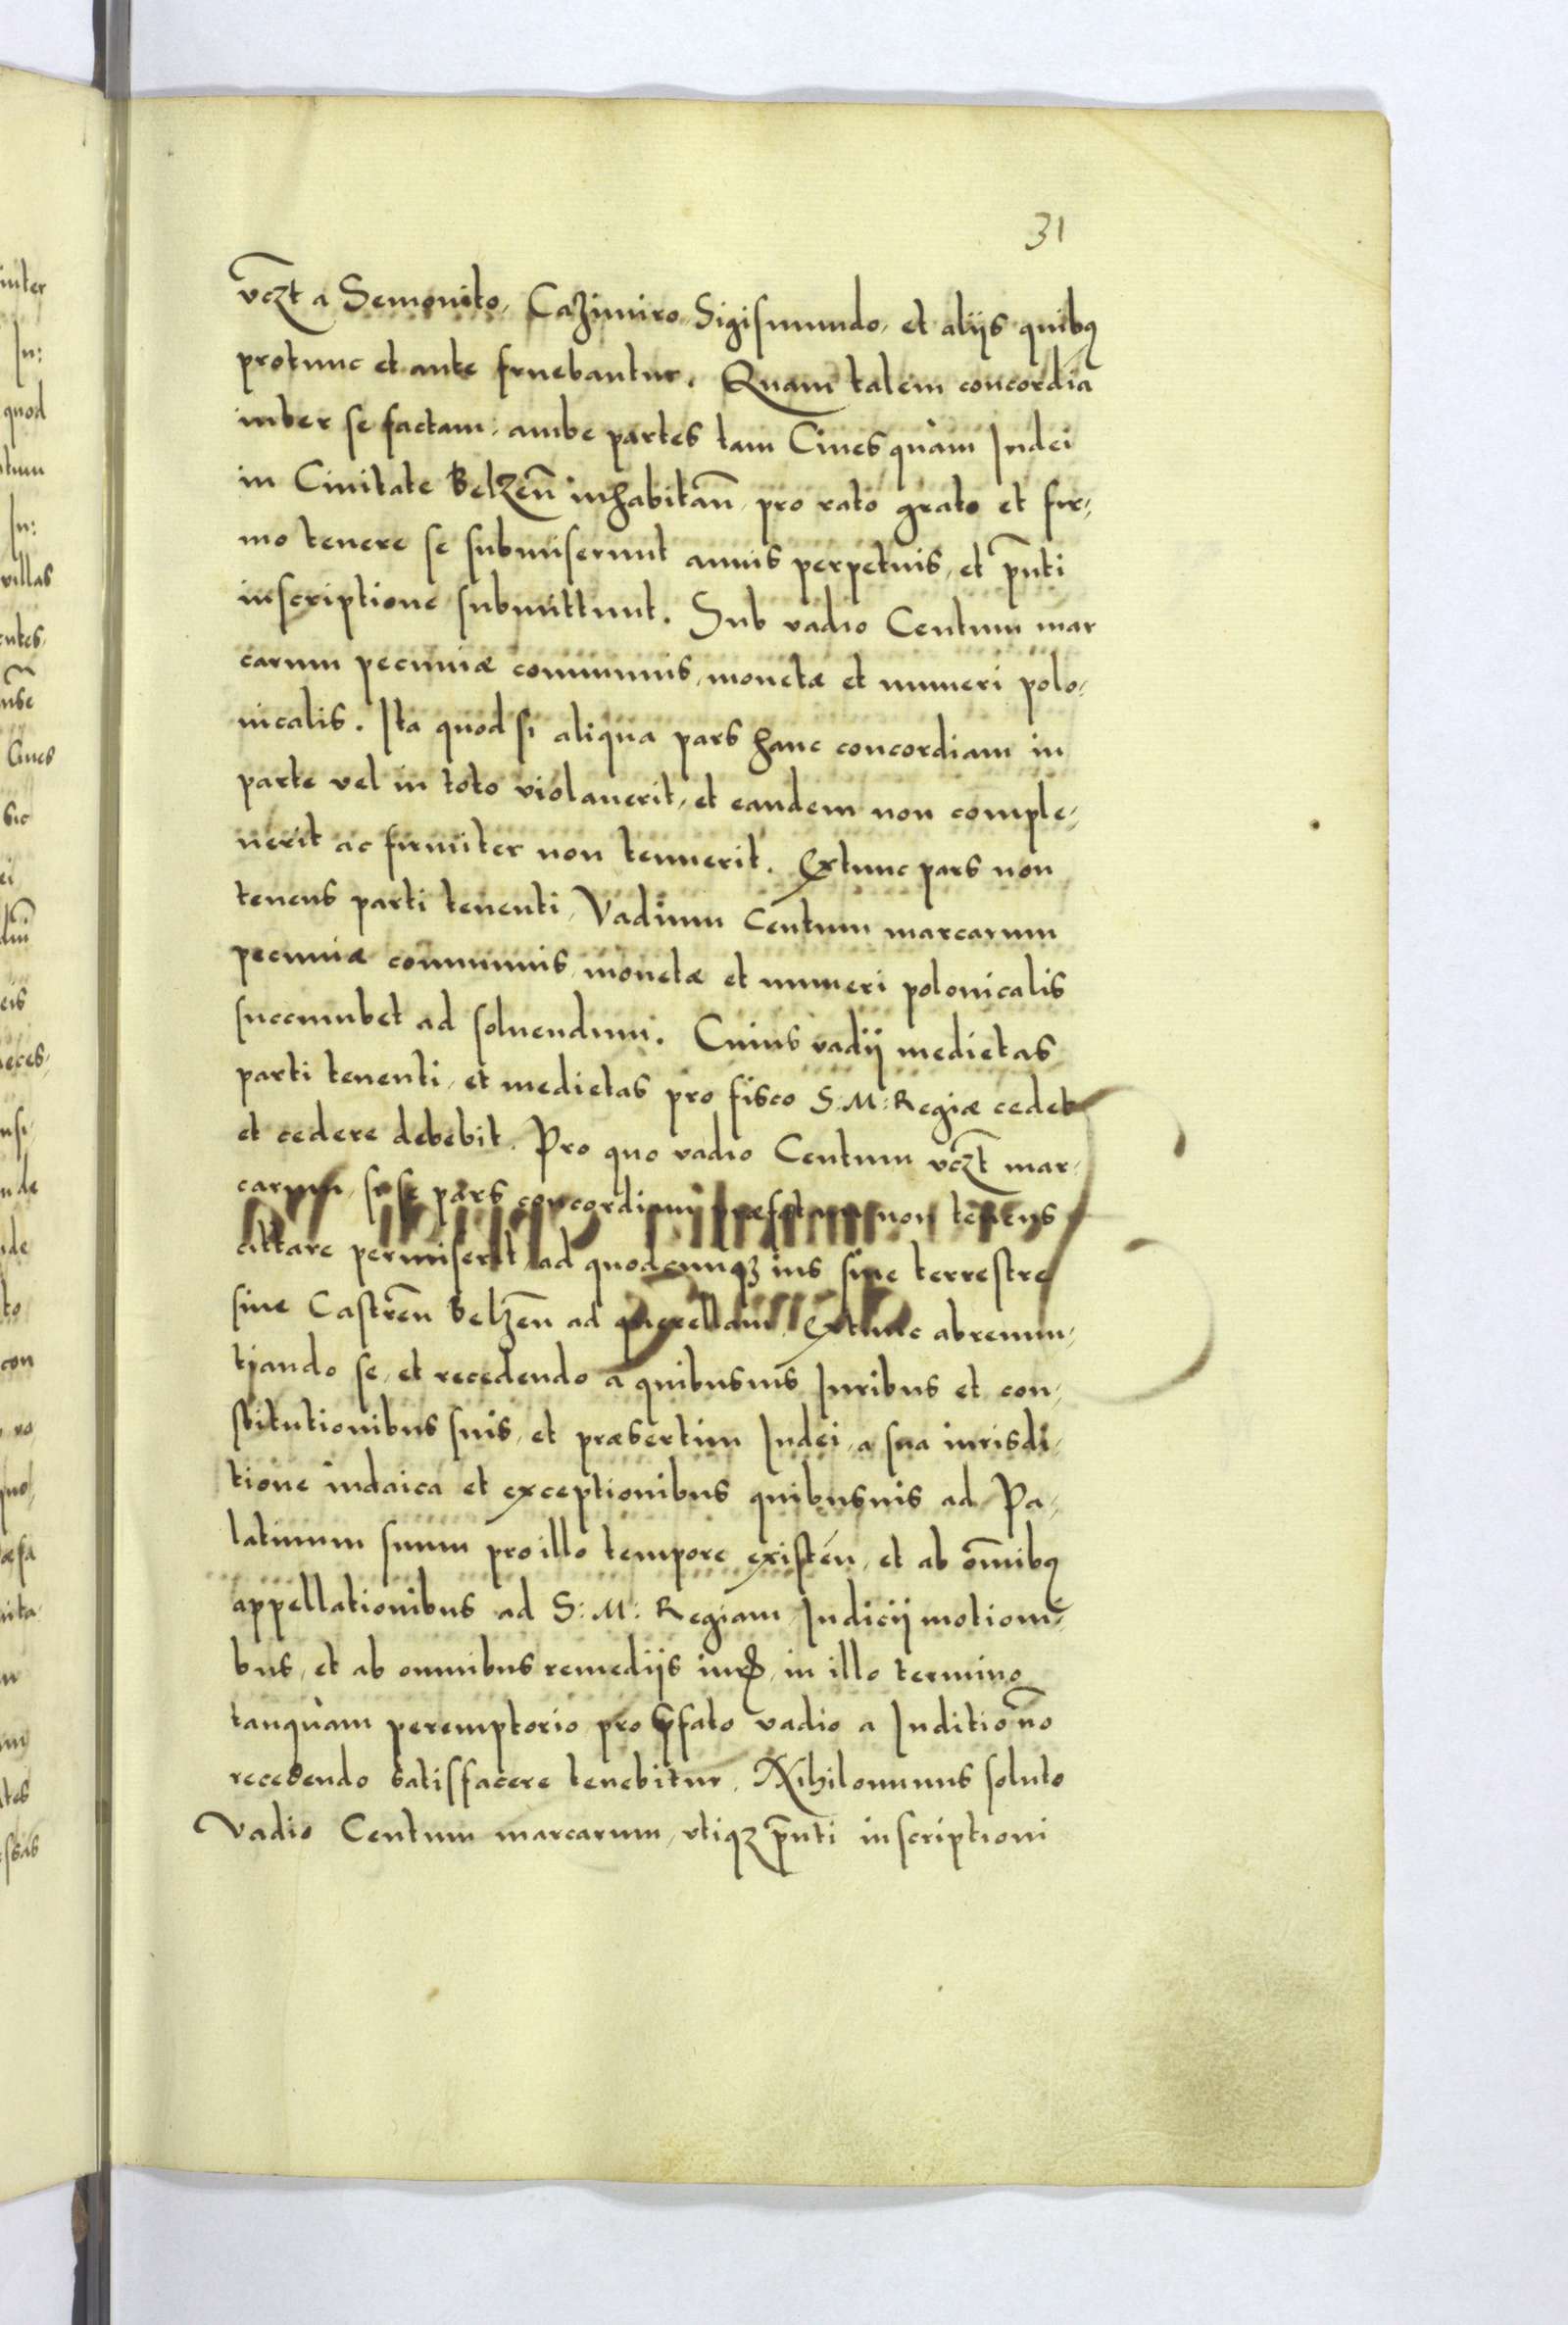 31
vczt a Semovito, Cazimiro Sigismundo, et alijs quibꝰ
protunc et ante fruebantur. Quam talem concordiā
inter se factam, ambe partes tam Ciues quàm Iudei
in Ciuitate Belzen̄ inhabitan̄, pro rato grato et fir,
mo tenere se submiserunt annis perpetuis, et pn̄ti
inscriptione submittunt. Sub vadio Centum mar
carum pecuniæ communis, monetæ et numeri polo,
nicalis. Ita quod si aliqua pars hanc concordiam in
parte vel in toto violauerit, et eandem non comple,
uerit ac firmiter non tenuerit. Extunc pars non
tenens parti tenenti, Vadium Centum marcarum
pecuniæ communis, monetæ et numeri polonicalis
succumbet ad soluendum. Cuius vadij medietas
parti tenenti, et medietas pro fisco S: M: Regiæ cedet
et cedere debebit. Pro quo vadio Centum vczt mar,
carum, si se pars concordiam præfatam non tenens
cittare permiserit, ad quodcunqꝫ ius siue terrestre
siue Castren̄ Belzen̄ ad querellam. Extunc abrenun,
tiando se, et recedendo a quibusuis Iuribus et con,
stitutionibus suis, et præsertim Iudei, a sua iurisdi,
tione iudaica et exceptionibus quibusuis ad Pa,
latinum suum pro illo tempore existen̄, et ab om̄ibꝰ
appellationibus ad S: M: Regiam, Iudicij motioni,
bus, et ab omnibus remedijs iuris, in illo termino
tanquàm peremptorio pro p̄fato vadio a Iuditio nō
recedendo satisfacere tenebitur. Nihilominus soluto
Vadio Centum marcarum, vtiqꝫ pn̄ti inscriptioni